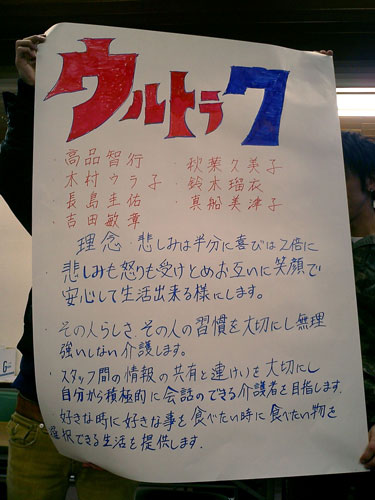 ウルトラ7
・高品智行 ・秋葉久美子
木村ウラ子 ・鈴木瑠衣
長島圭佑 ・真船美津子
吉田敏章
理念・悲しみは半分に喜びは2倍に
・悲しみも怒りも受けとめお互いに笑顔で
安心して生活出来る様にします。
・その人らしさ、その人の習慣を大切にし無理
強いしない介護します。
・スタッフ間の情報の共有と連けいを大切にし
自分から積極的に会話のできる介護者を目指します。
・好きな時に好きな事を食べたい時に食べたい物を
選択できる生活を提供します。